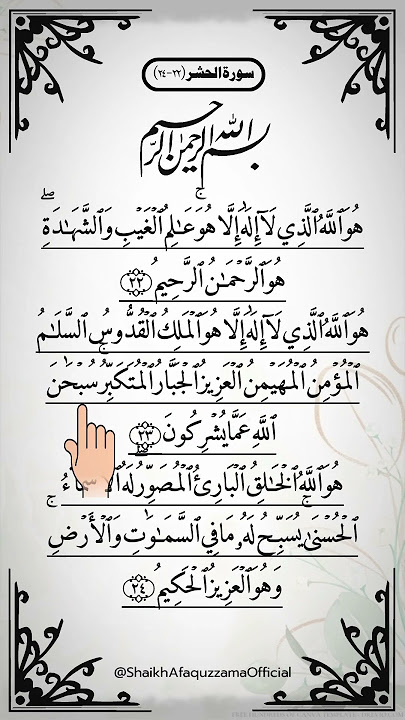 سورة الحشر (٢٢-٢٤)
بسم الله الرحمن الرحيم
هُوَ ٱللَّهُ ٱلَّذِي لَآ إِلَٰهَ إِلَّا هُوَۖ عَٰلِمُ ٱلۡغَيۡبِ وَٱلشَّهَٰدَةِۖ
هُوَ ٱلرَّحۡمَٰنُ ٱلرَّحِيمُ ٢٢
هُوَ ٱللَّهُ ٱلَّذِي لَآ إِلَٰهَ إِلَّا هُوَ ٱلۡمَلِكُ ٱلۡقُدُّوسُ ٱلسَّلَٰمُ
ٱلۡمُؤۡمِنُ ٱلۡمُهَيۡمِنُ ٱلۡعَزِيزُ ٱلۡجَبَّارُ ٱلۡمُتَكَبِّرُۚ سُبۡحَٰنَ
ٱللَّهِ عَمَّا يُشۡرِكُونَ ٢٣
هُوَ ٱللَّهُ ٱلۡخَٰلِقُ ٱلۡبَارِئُ ٱلۡمُصَوِّرُۖ لَهُ
ٱلۡحُسۡنَىٰۚ يُسَبِّحُ لَهُۥ مَا فِي ٱلسَّمَٰوَٰتِ وَٱلۡأَرۡضِۖ
وَهُوَ ٱلۡعَزِيزُ ٱلۡحَكِيمُ ٢٤
@ShaikhAfaquzzamaOfficial